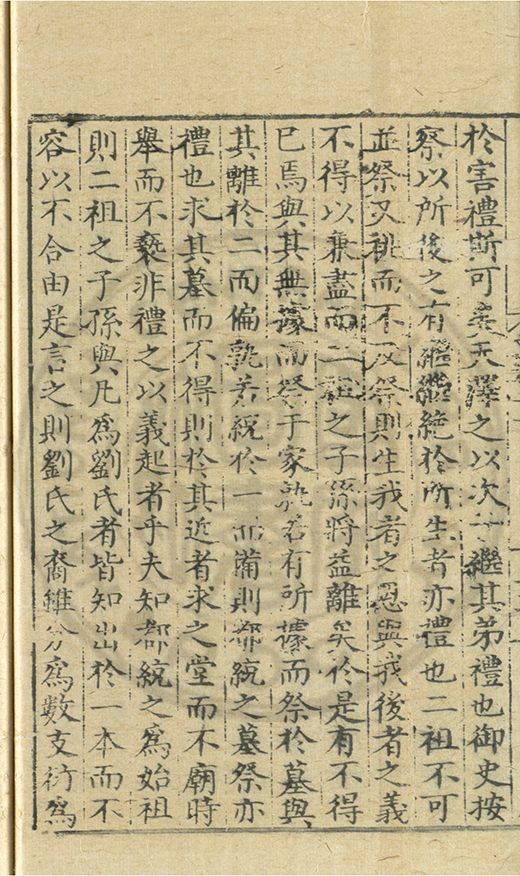 於害禮斯可矣天澤之以次子繼其弟禮也御史按
察以所後之有繼繼絶於所生者亦禮也二祖不可
並祭又祧而不及祭則生我者之恩與我後者之義
不得以兼盡而二祖之子孫將益離矣於是有不得
已焉與其無據而祭于家孰若有所據而祭於墓與
其離於二而偏孰若統於一而備則都統之墓祭亦
禮也求其墓而不得則於其近者求之堂而不廟時
舉而不褻非禮之以義起者乎夫知都統之為始祖
則二祖之子孫與凡為劉氏者皆知出於一本而不
容以不合由是言之則劉氏之裔雖分為數支衍為